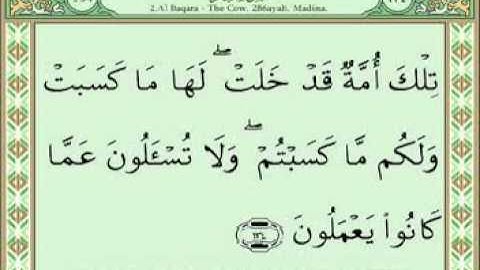 2.Al Baqara - The Cow. 286ayah. Madina.
تِلْكَ أُمَّةٌ قَدْ خَلَتْ ۖ لَهَا مَا كَسَبَتْ
وَلَكُم مَّا كَسَبْتُمْ ۖ وَلَا تُسْـَٔلُونَ عَمَّا
كَانُوا۟ يَعْمَلُونَ